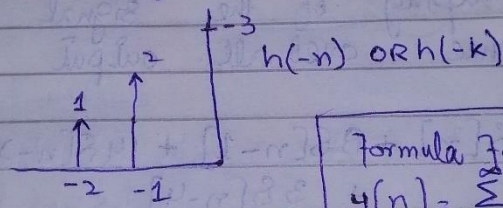 -3
2
h(-n) OR h(-k)
1
-2 -1
Formula
y[n] = ∞ Σ